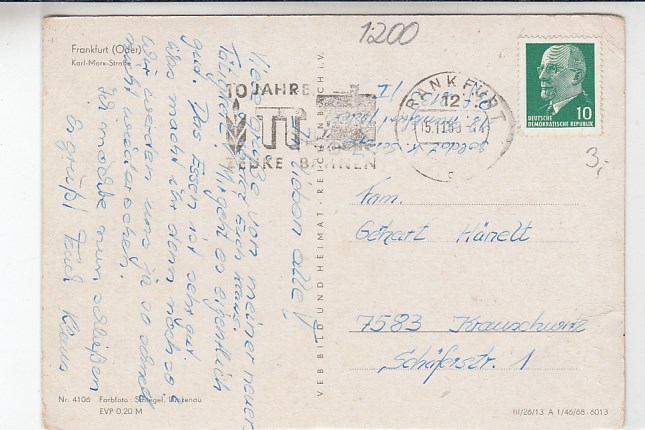 1200
Frankfurt (Oder)
Karl-Marx-Straße
10 JAHRE
PIONIER
FRANKFURT
12
15.11.68
c
DEUTSCHE
DEMOKRATISCHE REPUBLIK
10
3,-
Ihr lieben alle!
Viele Grüße von meiner neuen
sendet euch Klaus.
Mir geht es eigentlich
gut. Das Essen ist sehr gut
Was macht ihr denn noch so.
Wir werden uns ja so schnell
nicht wiedersehen.
Ich möchte nun schließen
Es grüßt Euch Klaus
VEB BILD UND HEIMAT · REICHENBACH i.V.
Fam.
Gehart Hänelt
7583 Krauschwitz
Schäferstr. 1
Nr. 4106 Farbfoto:
EVP 0.20 M
III/26/13 A 1/46/68 6013